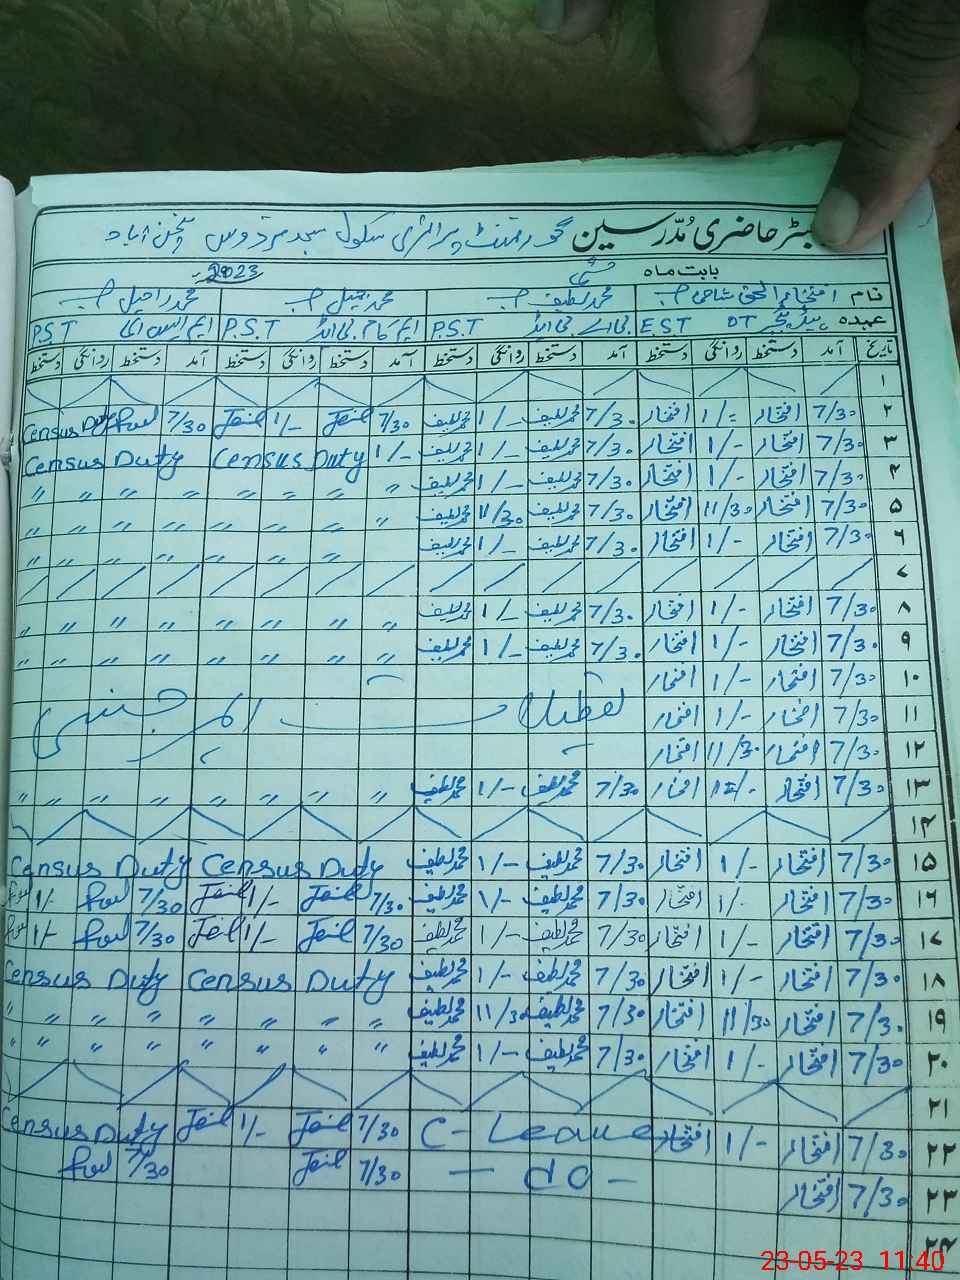 رجسٹر حاضری مُدّرسین گورنمنٹ پرائمری سکول مسجد فردوس منچن آباد
بابت ماہ مئی 2023
نام افتخار الحق شامی صاحب محمد لطیف صاحب محمد جمیل صاحب محمد راحیل صاحب
عہدہ ہیڈ ٹیچر DT EST بی اے بی ایڈ P.S.T ایم کام بی ایڈ P.S.T P.S.T
تاریخ آمد دستخط روانگی دستخط آمد دستخط روانگی دستخط آمد دستخط روانگی دستخط آمد دستخط روانگی دستخط
۱
۲ 7/30 افتخار 1/- افتخار 7/30 محمد لطیف 1/- محمد لطیف 7/30 Jamil 1/- Jamil 7/30 Census Duty
۳ 7/30 افتخار 1/- افتخار 7/30 محمد لطیف 1/- محمد لطیف 1/- Census Duty Census Duty
۴ 7/30 افتخار 1/- افتخار 7/30 محمد لطیف 1/- محمد لطیف " " " " " " " "
۵ 7/30 افتخار 11/30 افتخار 7/30 محمد لطیف 11/30 محمد لطیف " " " " " " " "
۶ 7/30 افتخار 1/- افتخار 7/30 محمد لطیف 1/- محمد لطیف " " " " " " "
۷
۸ 7/30 افتخار 1/- افتخار 7/30 محمد لطیف 1/- محمد لطیف " " " " " " " "
۹ 7/30 افتخار 1/- افتخار 7/30 محمد لطیف 1/- محمد لطیف " " " " " " " "
۱۰ 7/30 افتخار 1/- افتخار
۱۱ 7/30 افتخار 1/- افتخار تعطیلات ایمرجنسی
۱۲ 7/30 افتخار 11/30 افتخار
۱۳ 7/30 افتخار افتخار 7/30 محمد لطیف 1/- محمد لطیف " " " " " " "
۱۴
۱۵ 7/30 افتخار 1/- افتخار 7/30 محمد لطیف 1/- محمد لطیف Census Duty Census Duty
۱۶ 7/30 افتخار 1/- افتخار 7/30 محمد لطیف 1/- محمد لطیف 7/30 Jamil 1/- Jamil 7/30 1/-
۱۷ 7/30 افتخار 1/- افتخار 7/30 محمد لطیف 1/- محمد لطیف 7/30 Jamil 1/- Jamil 7/30 1/-
۱۸ 7/30 افتخار 1/- افتخار 7/30 محمد لطیف 1/- محمد لطیف Census Duty Census Duty
۱۹ 7/30 افتخار 11/30 افتخار 7/30 محمد لطیف 11/30 محمد لطیف " " " " " " "
۲۰ 7/30 افتخار 1/- افتخار 7/30 محمد لطیف 1/- محمد لطیف " " " " " " "
۲۱
۲۲ 7/30 افتخار 1/- افتخار C-Leave 7/30 Jamil 1/- Jamil Census Duty
۲۳ 7/30 افتخار - do - 7/30 Jamil 7/30
۲۴
23-05-23 11:40